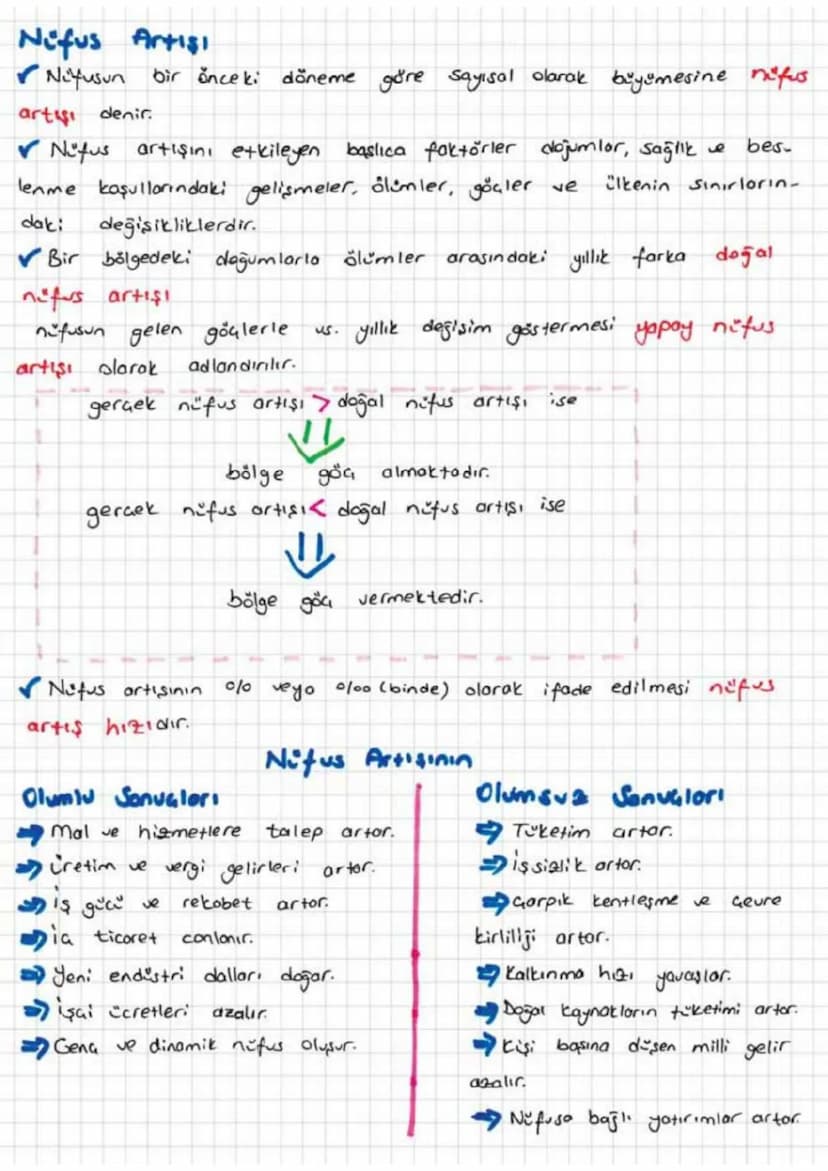 Nüfus Artışı
✓ Nüfusun bir önceki döneme göre sayısal olarak büyümesine nüfus
artışı denir.
✓ Nüfus artışını etkileyen başlıca faktörler doğumlar, sağlık ve bes-
lenme koşullarındaki gelişmeler, ölümler, göçler ve ülkenin sınırların-
daki değişikliklerdir.
✓ Bir bölgedeki doğumlarla ölümler arasındaki yıllık farka doğal
nüfus artışı
nüfusun gelen göçlerle vs. yıllık değişim göstermesi yapay nüfus
artışı olarak adlandırılır.
gerçek nüfus artışı > doğal nüfus artışı ise
⇓
bölge göç almaktadır.
gerçek nüfus artışı < doğal nüfus artışı ise
⇓
bölge göç vermektedir.
✓ Nüfus artışının % veya %o (binde) olarak ifade edilmesi nüfus
artış hızıdır.
Nüfus Artışının
Olumlu Sonuçları
⇒ Mal ve hizmetlere talep artar.
⇒ Üretim ve vergi gelirleri artar.
⇒ İş gücü ve rekabet artar.
⇒ İç ticaret canlanır.
⇒ Yeni endüstri dalları doğar.
⇒ İşçi ücretleri azalır.
⇒ Genç ve dinamik nüfus oluşur.
Olumsuz Sonuçları
⇒ Tüketim artar.
⇒ İşsizlik artar.
⇒ Çarpık kentleşme ve çevre
kirliliği artar.
⇒ Kalkınma hızı yavaşlar.
⇒ Doğal kaynakların tüketimi artar.
⇒ Kişi başına düşen milli gelir
azalır.
⇒ Nüfusa bağlı yatırımlar artar.